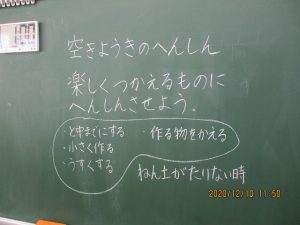 空きようきのへんしん
楽しくつかえるものに
へんしんさせよう。
・と中までにする
・小さく作る
・うすくする
・作る物をかえる
ねん土がたりない時
2020/12/10 11:50